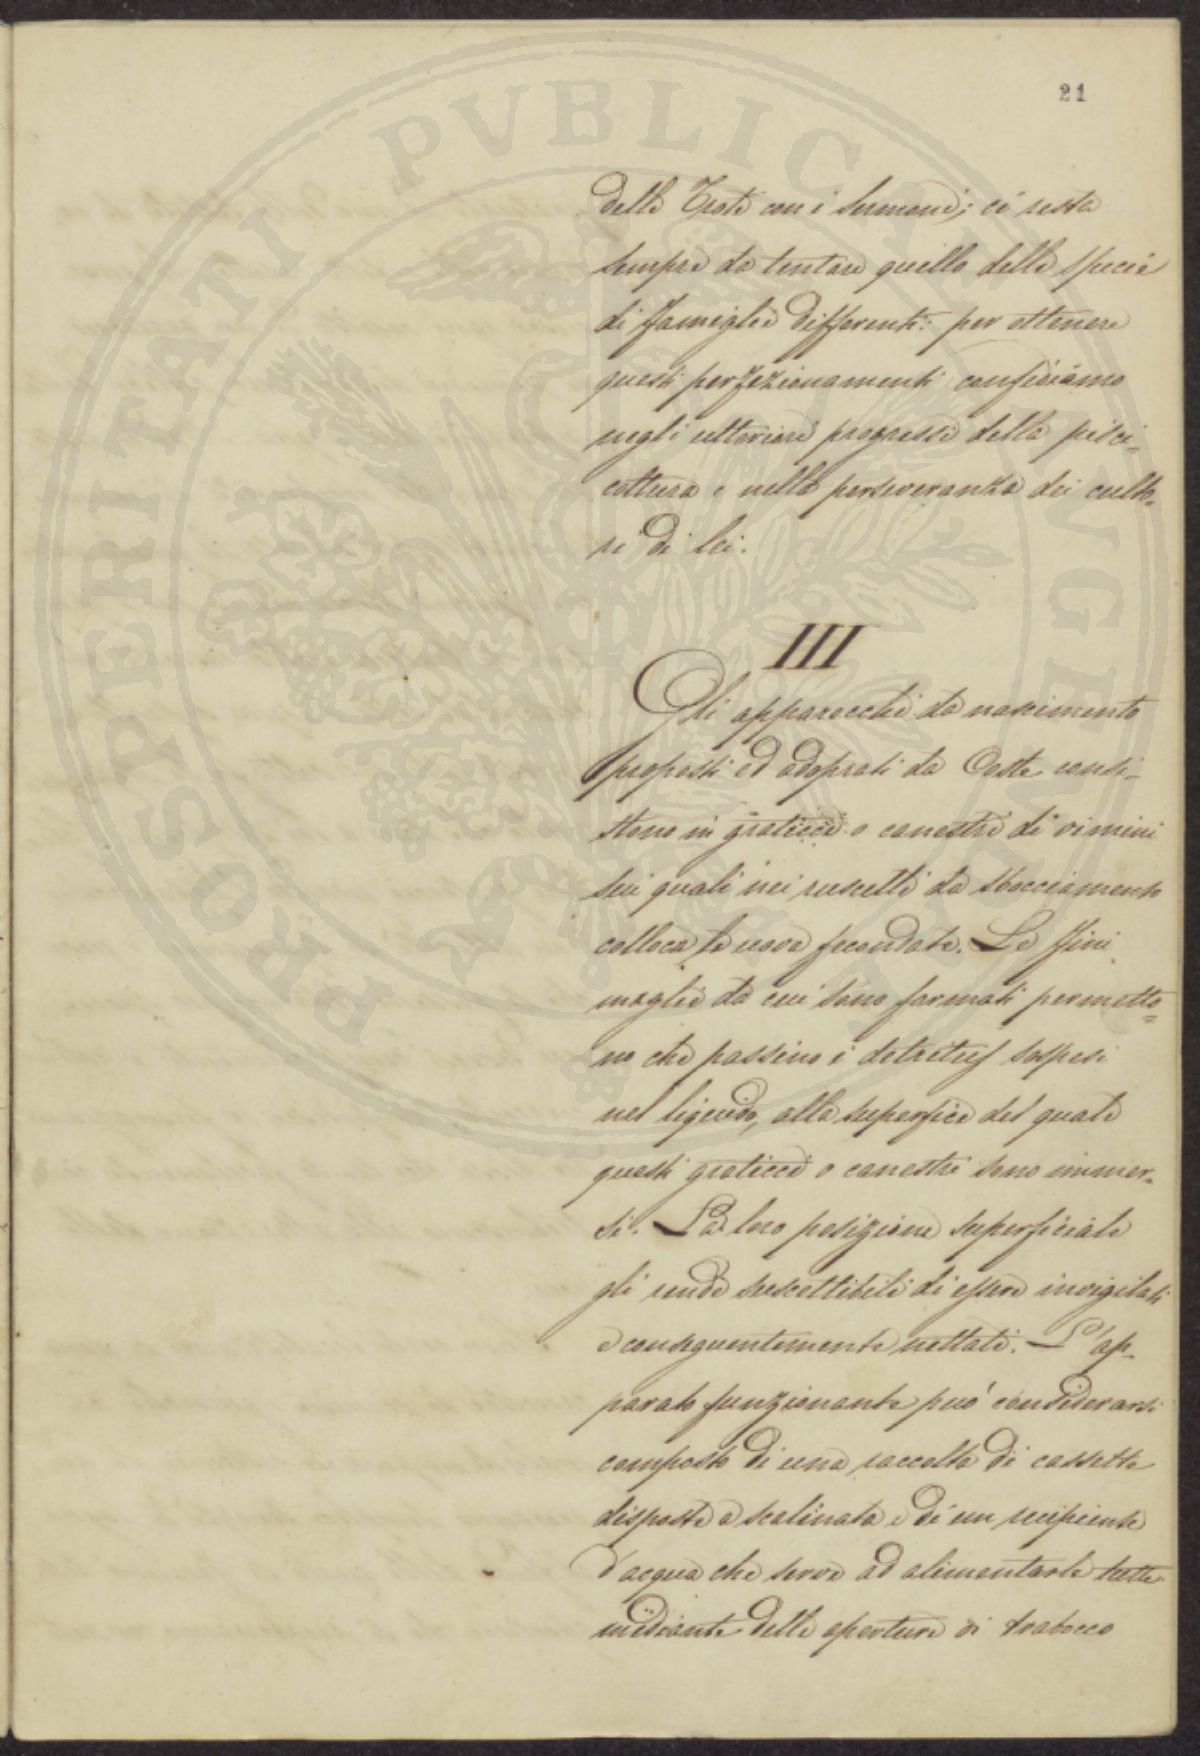 PROSPERITATI PVBLICAE AVGENDAE
21
delle Trote con i Sermoni; ci resta
sempre da tentare quello delle specie
di famiglie differenti: per ottenere
questi perfezionamenti confidiamo
negli ulteriori progressi della pisci-
coltura e nella perseveranza dei culto=
ri di lei.
III
Gli apparecchi da nascimento
proposti ed adoprati da Coste consi-
stono in graticci o canestri di vimini
sui quali nei ruscelli da sbocciamento
colloca le uova fecondate. Le fini
maglie da cui sono formati permetto=
no che passino i detritus sospesi
nel liquido, alla superfice del quale
questi graticci o canestri sono immer=
si. La loro posizione superficiale
gli rende suscettibili di essere invigilati
e conseguentemente nettati. L'ap-
parato funzionante può considerarsi
composto di una raccolta di cassette
disposte a scalinata e di un recipiente
d'acqua che serve ad alimentarle tutte
mediante delle aperture di trabocco